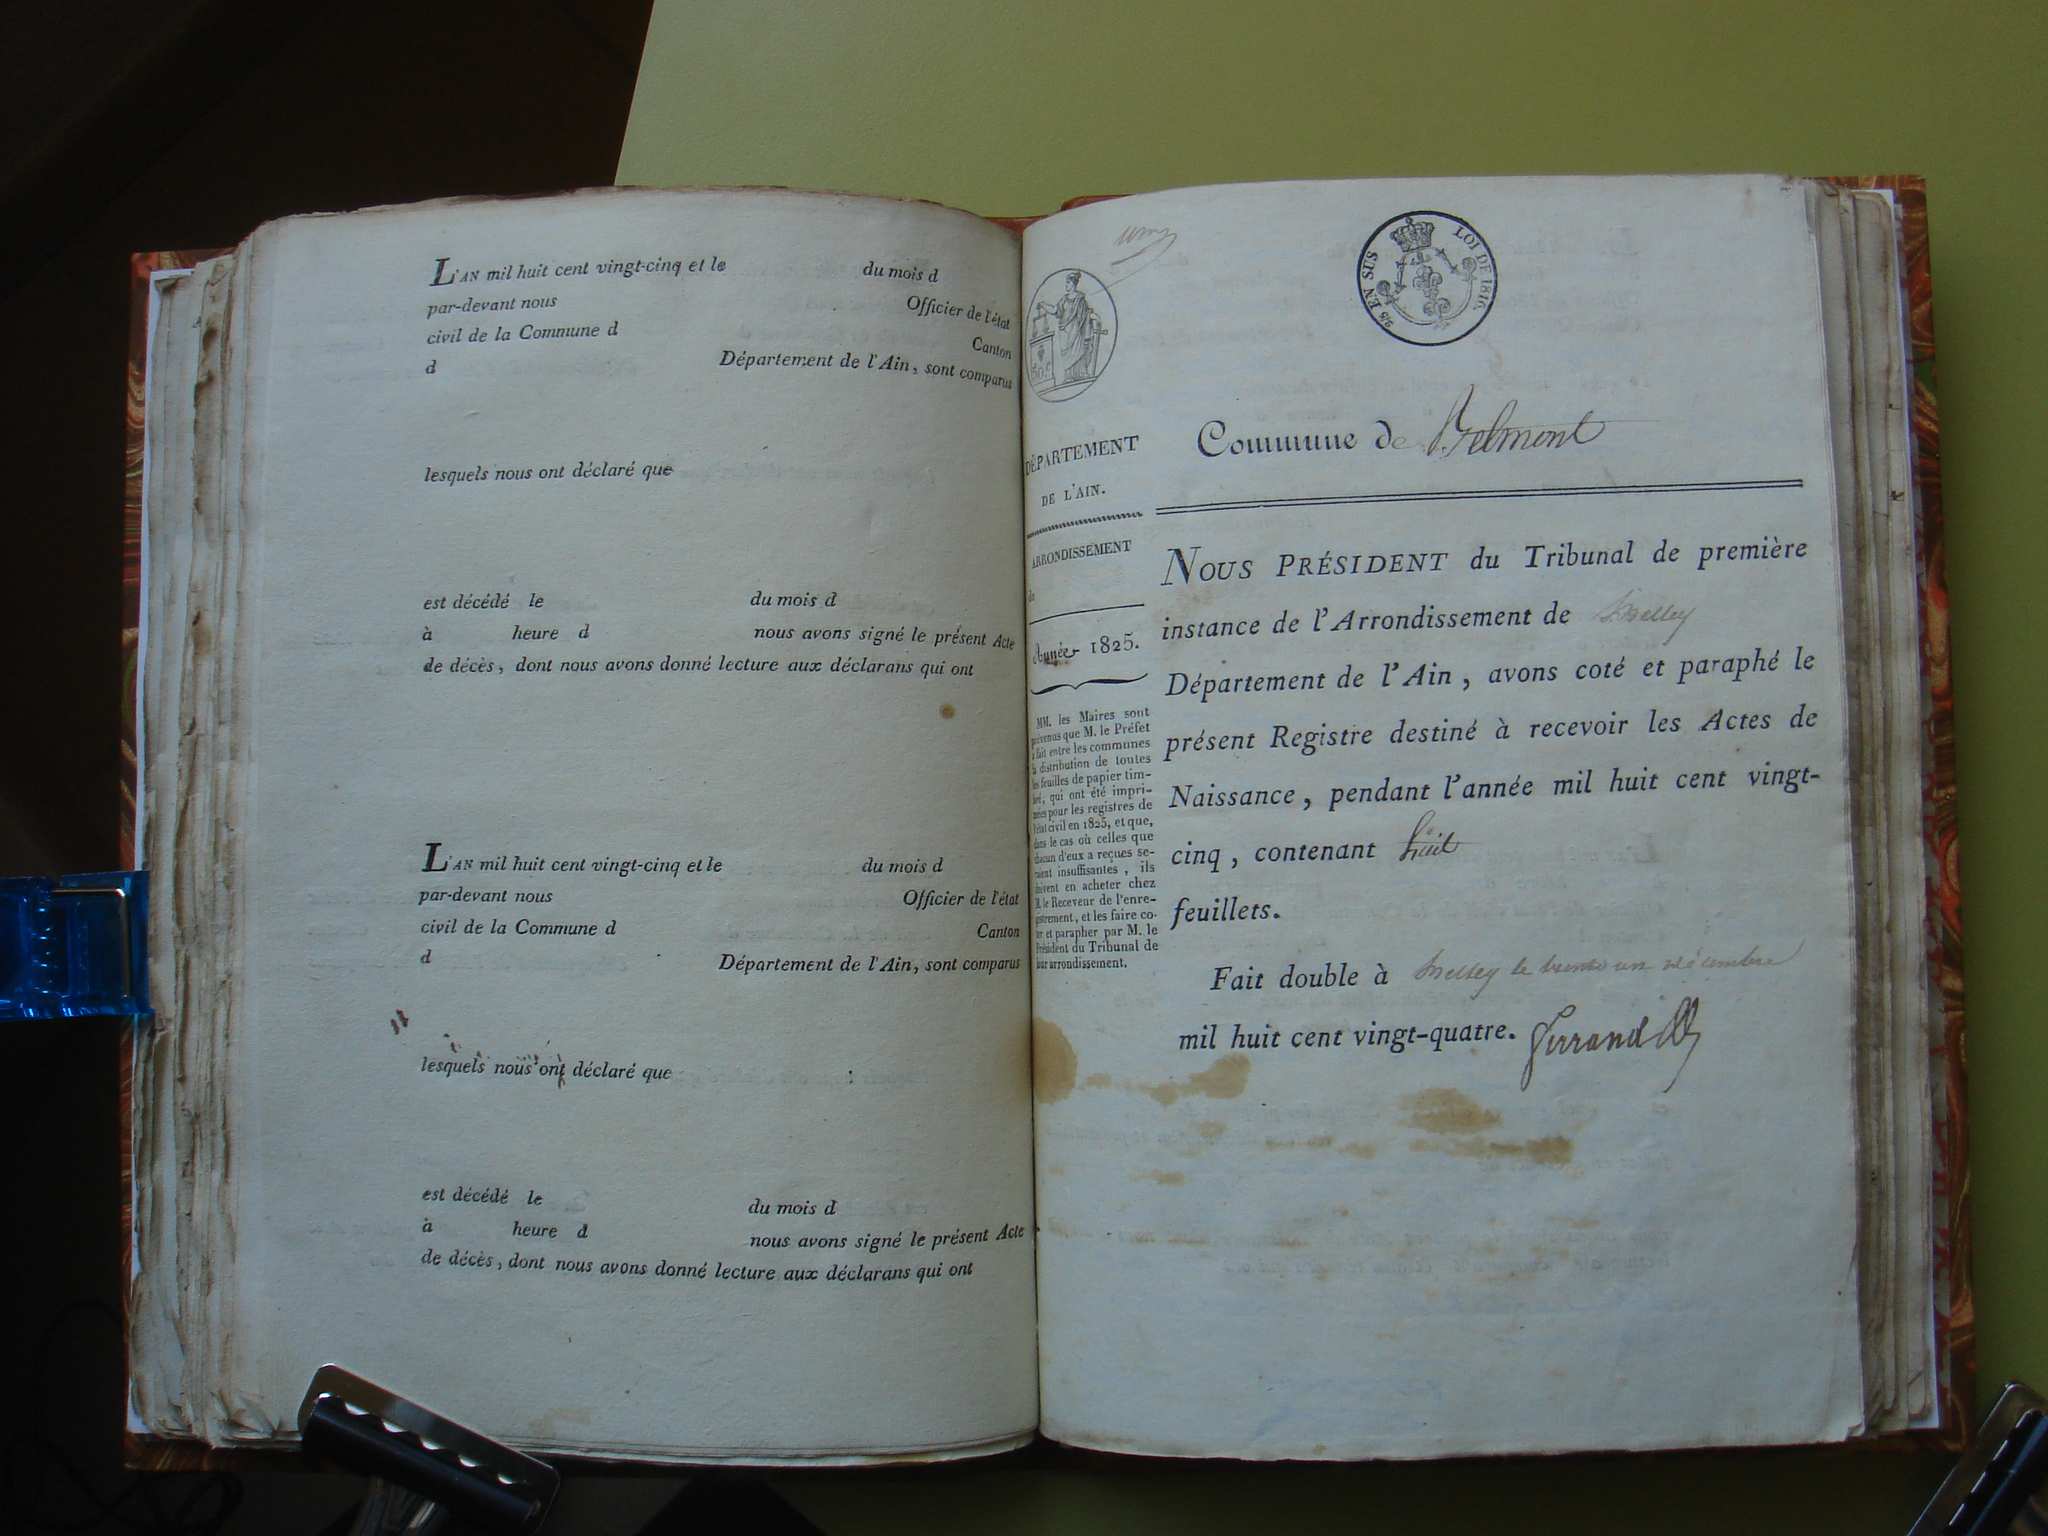 L'AN mil huit cent vingt-cinq et le du mois d
par-devant nous Officier de l'état
civil de la Commune d Canton
d Département de l'Ain, sont comparus
lesquels nous ont déclaré que
est décédé le du mois d
à heure d nous avons signé le présent Acte
de décès, dont nous avons donné lecture aux déclarans qui ont
L'AN mil huit cent vingt-cinq et le du mois d
par-devant nous Officier de l'état
civil de la Commune d Canton
d Département de l'Ain, sont comparus
lesquels nous ont déclaré que
est décédé le du mois d
à heure d nous avons signé le présent Acte
de décès, dont nous avons donné lecture aux déclarans qui ont
EN SUS LOI DE 1816.
DÉPARTEMENT
DE L'AIN.
ARRONDISSEMENT
de
Année 1825.
MM. les Maires sont
prévenus que M. le Préfet
a fait entre les communes
la distribution de toutes
les feuilles de papier tim-
bré, qui ont été impri-
mées pour les registres de
l'état civil en 1825, et que,
dans le cas où celles que
chacun d'eux a reçues se-
raient insuffisantes, ils
doivent en acheter chez
M. le Receveur de l'enre-
gistrement, et les faire co-
ter et parapher par M. le
Président du Tribunal de
leur arrondissement.
Commune de Belmont
NOUS PRÉSIDENT du Tribunal de première
instance de l'Arrondissement de Belley
Département de l'Ain, avons coté et paraphé le
présent Registre destiné à recevoir les Actes de
Naissance, pendant l'année mil huit cent vingt-
cinq, contenant huit
feuillets.
Fait double à Belley le trente un décembre
mil huit cent vingt-quatre.